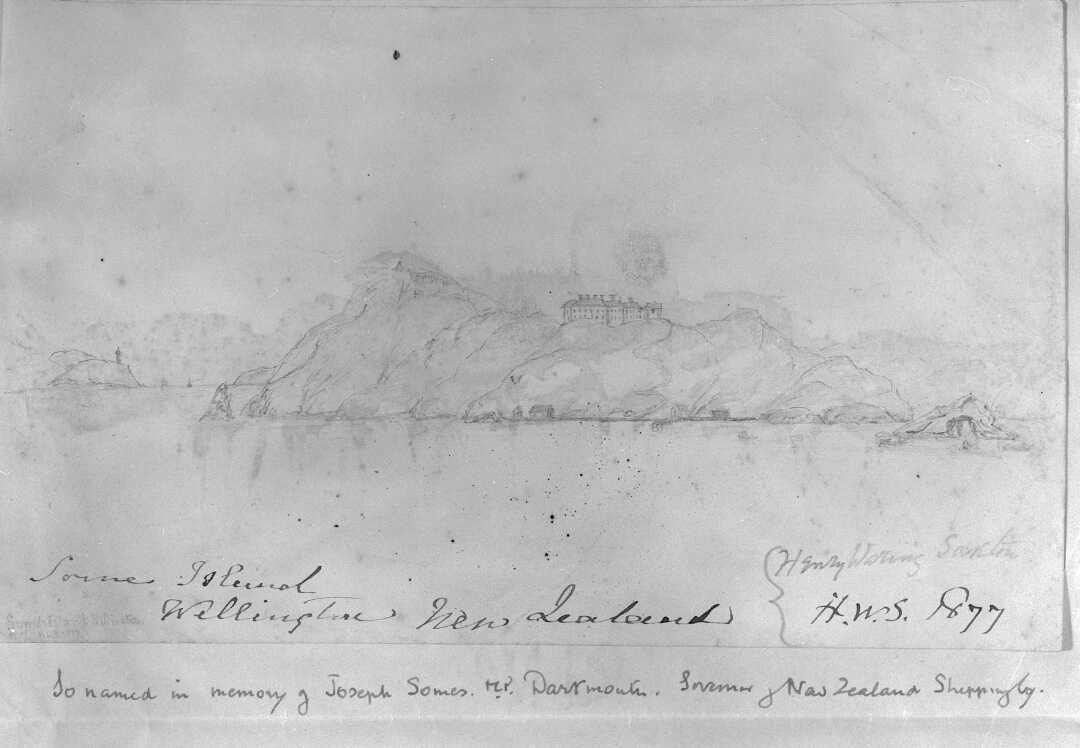 Some Island
Wellington New Zealand
Henry Waring
H.W.S. 1877
So named in memory of Joseph Somes. M.P. Dartmouth. Governor of New Zealand Shipping Co.